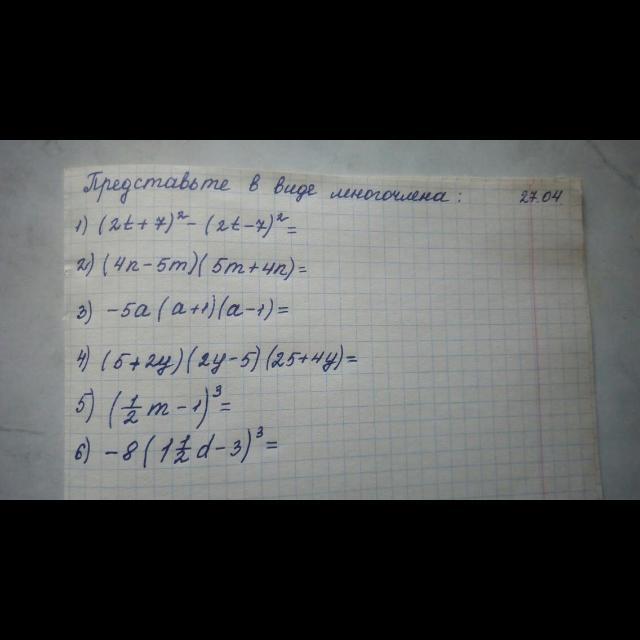 Представьте в виде многочлена: 27.04
1) (2t+7)² - (2t-7)² =
2) (4n-5m)(5m+4n)=
3) -5a(a+1)(a-1)=
4) (5+2y)(2y-5)(25+4y)=
5) (1/2 m - 1)³=
6) -8(1 1/2 d - 3)³=